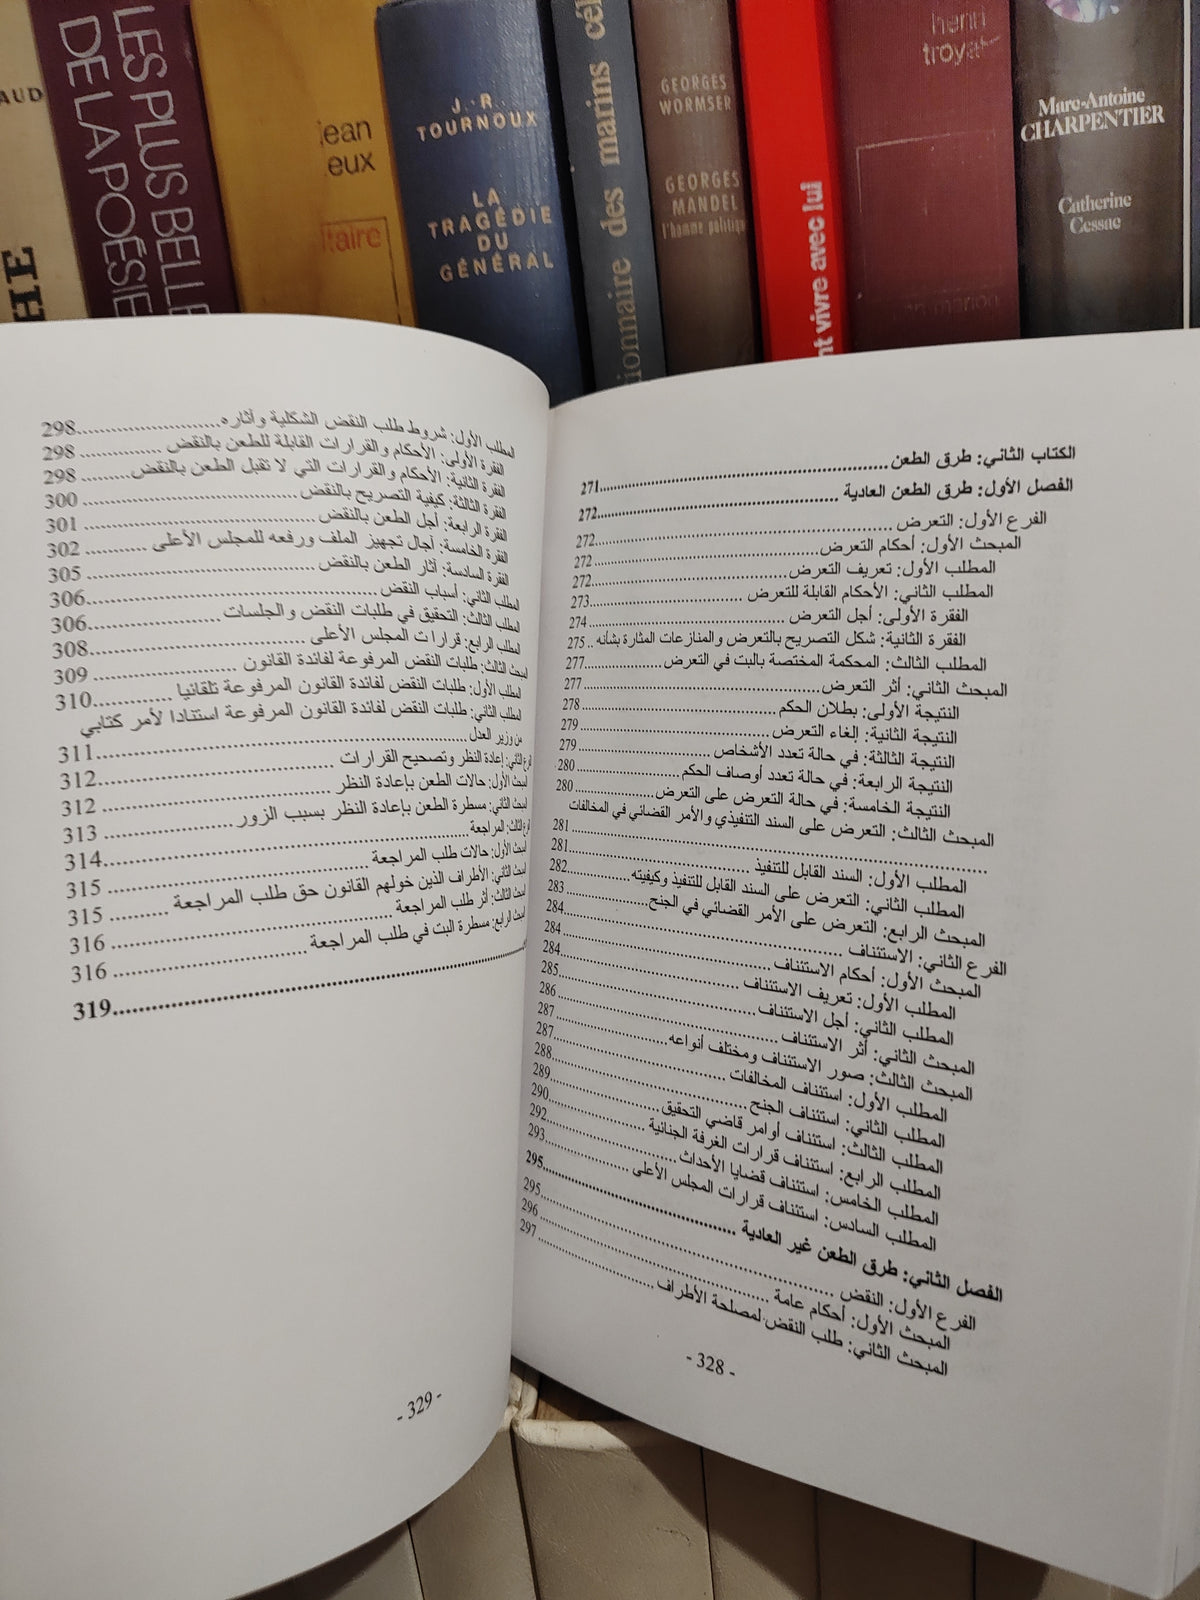 AUD
HE
LES PLUS BELLE
DE LA POÉSIE
jean
eux
ltaire
J.-R.
TOURNOUX
LA
TRAGÉDIE
DU
GÉNÉRAL
tionnaire des marins cél
GEORGES
WORMSER
GEORGES
MANDEL
l'homme politique
nt vivre avec lui
henri
troyat
Marc-Antoine
CHARPENTIER
Catherine
Cessac
الكتاب الثاني: طرق الطعن...271
الفصل الأول: طرق الطعن العادية...272
الفرع الأول: التعرض...272
المبحث الأول: أحكام التعرض...272
المطلب الأول: تعريف التعرض...272
المطلب الثاني: الأحكام القابلة للتعرض...273
الفقرة الأولى: أجل التعرض...274
الفقرة الثانية: شكل التصريح بالتعرض والمنازعات المثارة بشأنه..275
المطلب الثالث: المحكمة المختصة بالبت في التعرض...277
المبحث الثاني: أثر التعرض...277
النتيجة الأولى: بطلان الحكم...278
النتيجة الثانية: إلغاء التعرض...279
النتيجة الثالثة: في حالة تعدد الأشخاص...279
النتيجة الرابعة: في حالة تعدد أوصاف الحكم...280
النتيجة الخامسة: في حالة التعرض على التعرض...280
المبحث الثالث: التعرض على السند التنفيذي والأمر القضائي في المخالفات
...281
المطلب الأول: السند القابل للتنفيذ...281
المطلب الثاني: التعرض على السند القابل للتنفيذ وكيفيته...282
المبحث الرابع: التعرض على الأمر القضائي في الجنح...283
الفرع الثاني: الاستئناف...284
المبحث الأول: أحكام الاستئناف...284
المطلب الأول: تعريف الاستئناف...284
المطلب الثاني: أجل الاستئناف...285
المبحث الثاني: أثر الاستئناف...286
المبحث الثالث: صور الاستئناف ومختلف أنواعه...287
المطلب الأول: استئناف المخالفات...287
المطلب الثاني: استئناف الجنح...288
المطلب الثالث: استئناف أوامر قاضي التحقيق...289
المطلب الرابع: استئناف قرارات الغرفة الجنائية...290
المطلب الخامس: استئناف قضايا الأحداث...292
المطلب السادس: استئناف قرارات المجلس الأعلى...293
الفصل الثاني: طرق الطعن غير العادية...295
الفرع الأول: النقض...295
المبحث الأول: أحكام عامة...296
المبحث الثاني: طلب النقض لمصلحة الأطراف...297
- 328 -
المطلب الأول: شروط طلب النقض الشكلية وآثاره...298
الفقرة الأولى: الأحكام والقرارات القابلة للطعن بالنقض...298
الفقرة الثانية: الأحكام والقرارات التي لا تقبل الطعن بالنقض...298
الفقرة الثالثة: كيفية التصريح بالنقض...300
الفقرة الرابعة: أجل الطعن بالنقض...301
الفقرة الخامسة: آجال تجهيز الملف ورفعه للمجلس الأعلى...302
الفقرة السادسة: آثار الطعن بالنقض...305
المطلب الثاني: أسباب النقض...306
المطلب الثالث: التحقيق في طلبات النقض والجلسات...306
المطلب الرابع: قرارات المجلس الأعلى...308
المبحث الثالث: طلبات النقض المرفوعة لفائدة القانون...309
المطلب الأول: طلبات النقض لفائدة القانون المرفوعة تلقائيا...310
المطلب الثاني: طلبات النقض لفائدة القانون المرفوعة استنادا لأمر كتابي
من وزير العدل...311
الثاني: إعادة النظر وتصحيح القرارات...312
الأول: حالات الطعن بإعادة النظر...312
الثاني: مسطرة الطعن بإعادة النظر بسبب الزور...313
الثالث: المراجعة...314
الأول: حالات طلب المراجعة...315
الثاني: الأطراف الذين خولهم القانون حق طلب المراجعة...315
الثالث: أثر طلب المراجعة...316
الرابع: مسطرة البت في طلب المراجعة...316
...319
- 329 -